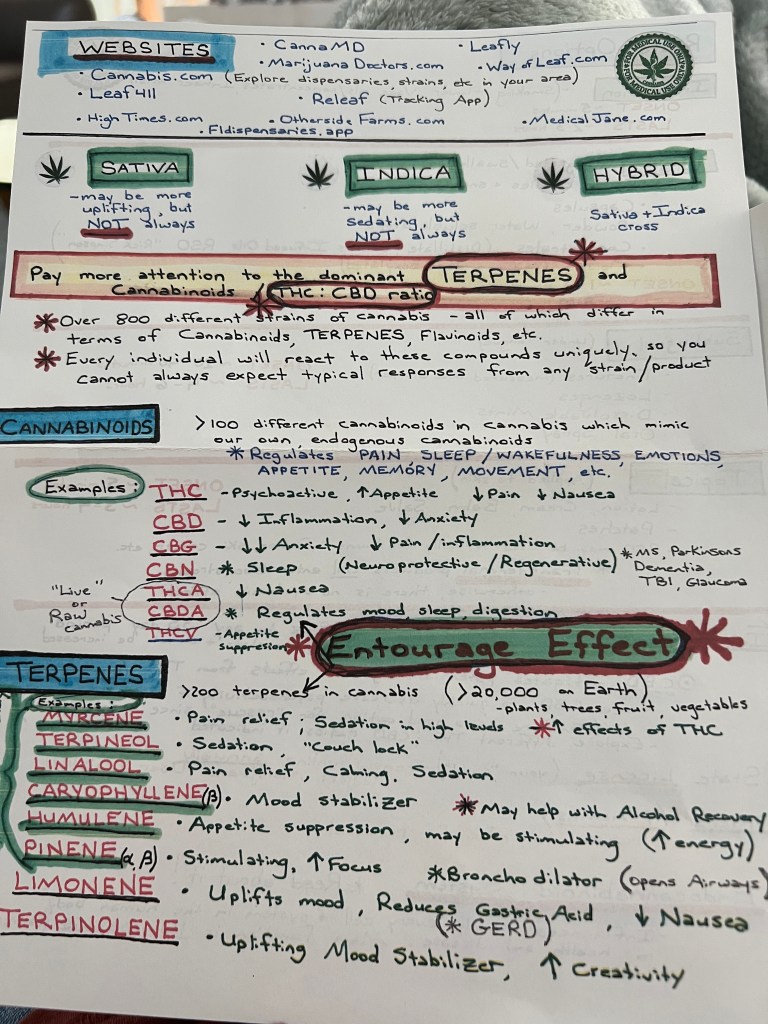 WEBSITES
• CannaMD
• Leafly
• Marijuana Doctors.com
• Way of Leaf.com
• Cannabis.com (Explore dispensaries, strains, etc in your area)
• Leaf411
• Releaf (Tracking App)
• High Times.com
• Otherside Farms.com
• Medical Jane.com
• Fldispensaries.app
FOR MEDICAL USE ONLY
FOR MEDICAL USE ONLY
SATIVA
- may be more
uplifting, but
NOT always
INDICA
- may be more
Sedating, but
NOT always
HYBRID
Sativa + Indica
cross
Pay more attention to the dominant TERPENES * and
Cannabinoids / THC : CBD ratio
*
* Over 800 different strains of cannabis - all of which differ in
terms of Cannabinoids, TERPENES, Flavinoids, etc.
* Every individual will react to these compounds uniquely, so you
cannot always expect typical responses from any strain/product
CANNABINOIDS
>100 different cannabinoids in cannabis which mimic
our own, endogenous cannabinoids
* Regulates PAIN, SLEEP/WAKEFULNESS, EMOTIONS,
APPETITE, MEMORY, MOVEMENT, etc.
Examples :
THC - Psychoactive, ↑ Appetite ↓ Pain ↓ Nausea
CBD - ↓ Inflammation, ↓ Anxiety
CBG - ↓↓ Anxiety ↓ Pain/inflammation
CBN * Sleep (Neuroprotective/Regenerative) * MS, Parkinsons
Dementia,
TBI, Glaucoma
"Live"
or
Raw
cannabis
THCA ↓ Nausea
CBDA * Regulates mood, sleep, digestion
THCV - Appetite
suppresion
* Entourage Effect *
TERPENES
>200 terpenes in cannabis (>20,000 on Earth)
- plants, trees, fruit, vegetables
Examples :
MYRCENE • Pain relief ; Sedation in high levels * ↑ effects of THC
TERPINEOL • Sedation, "Couch lock"
LINALOOL • Pain relief, Calming, Sedation
CARYOPHYLLENE (β) • Mood stabilizer * May help with Alcohol Recovery
HUMULENE • Appetite suppression, may be stimulating (↑ energy)
PINENE (α, β) • Stimulating, ↑ Focus * Broncho dilator (opens Airways)
LIMONENE • Uplifts mood, Reduces Gastric Acid, ↓ Nausea
(* GERD)
TERPINOLENE • Uplifting Mood Stabilizer, ↑ Creativity